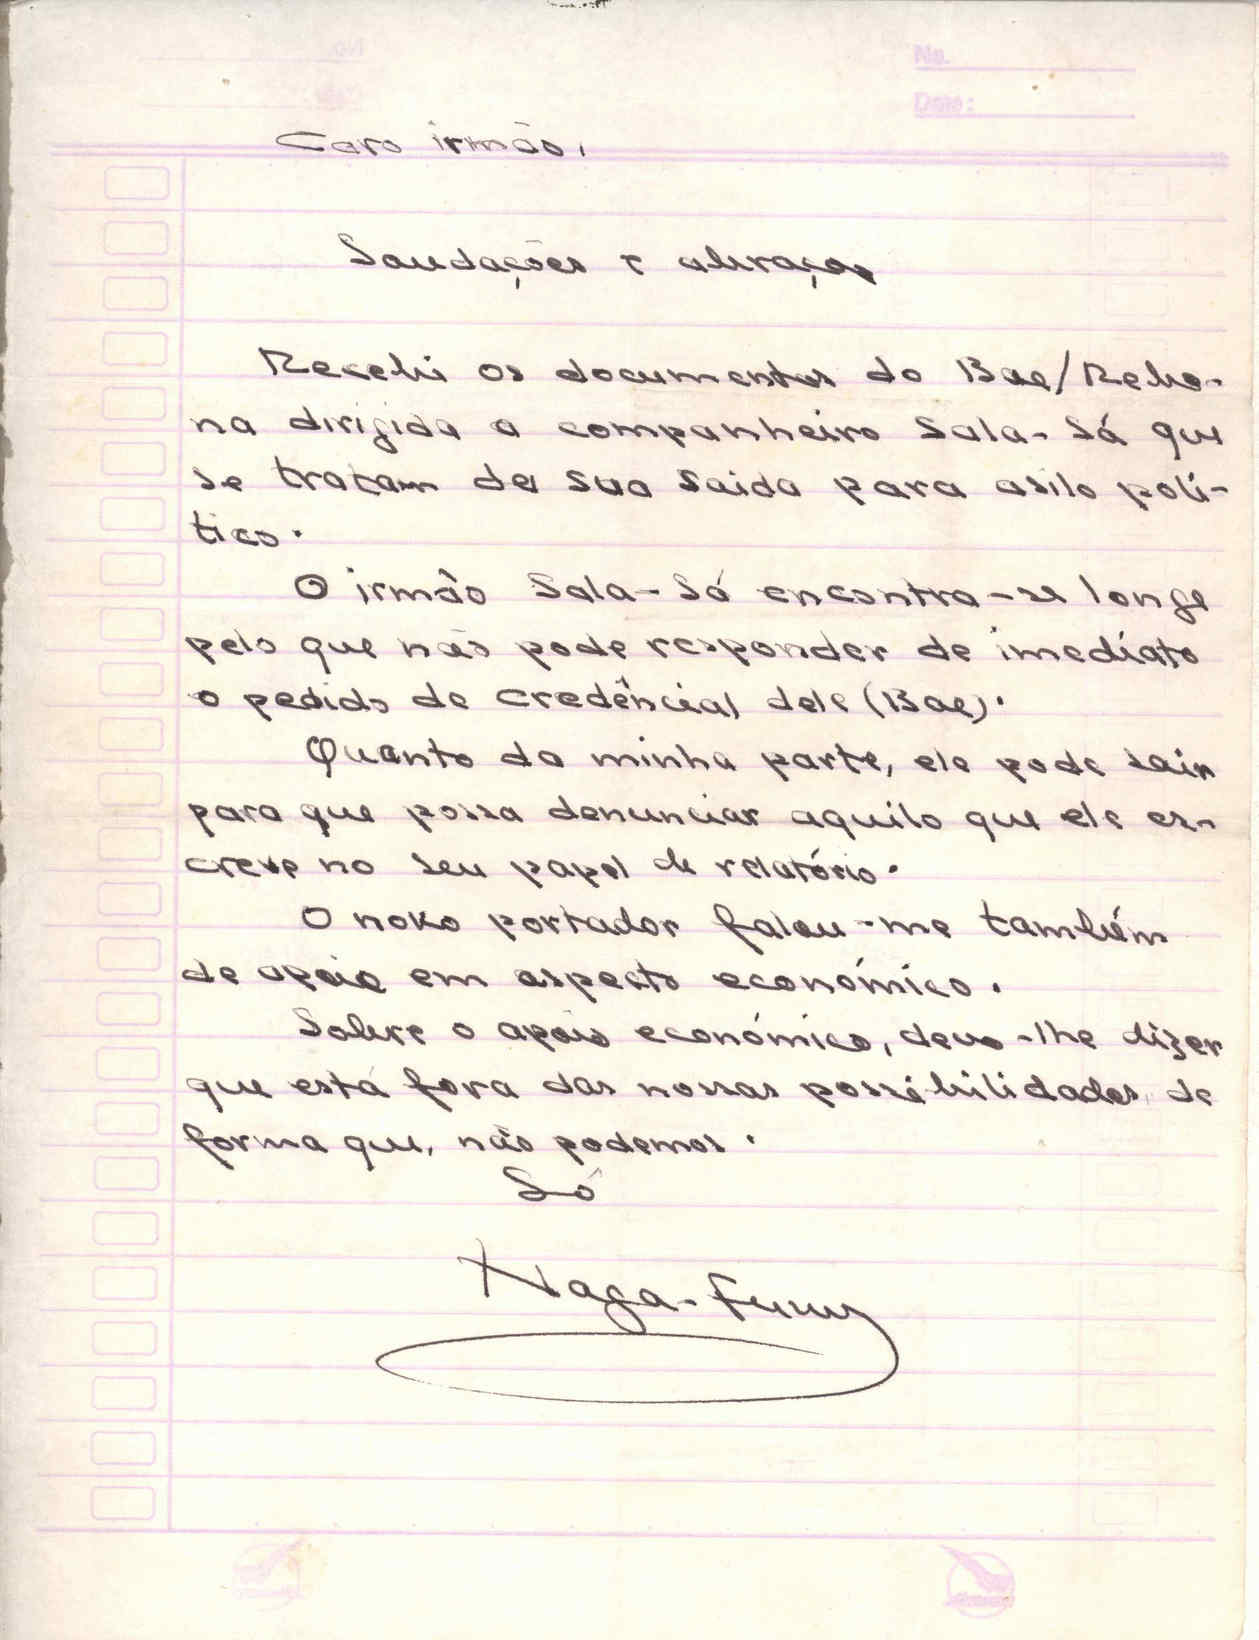 No.
Date:
Caro irmão,
Saudações e abraços
Recebi os documentos do Bae/Rebo-
na dirigida a companheiro Sala-Sá que
se tratam de sua saida para asilo polí-
tico.
O irmão Sala-Sá encontra-se longe
pelo que não pode responder de imediato
o pedido de credêncial dele (Bae).
Quanto da minha parte, ele pode sair
para que possa denunciar aquilo que ele es-
creve no seu papel de relatório.
O noko portador falou-me também
de apoio em aspecto económico.
Sobre o apoio económico, devo-lhe dizer
que está fora das nossas possibilidades de
forma que, não podemos.
Só